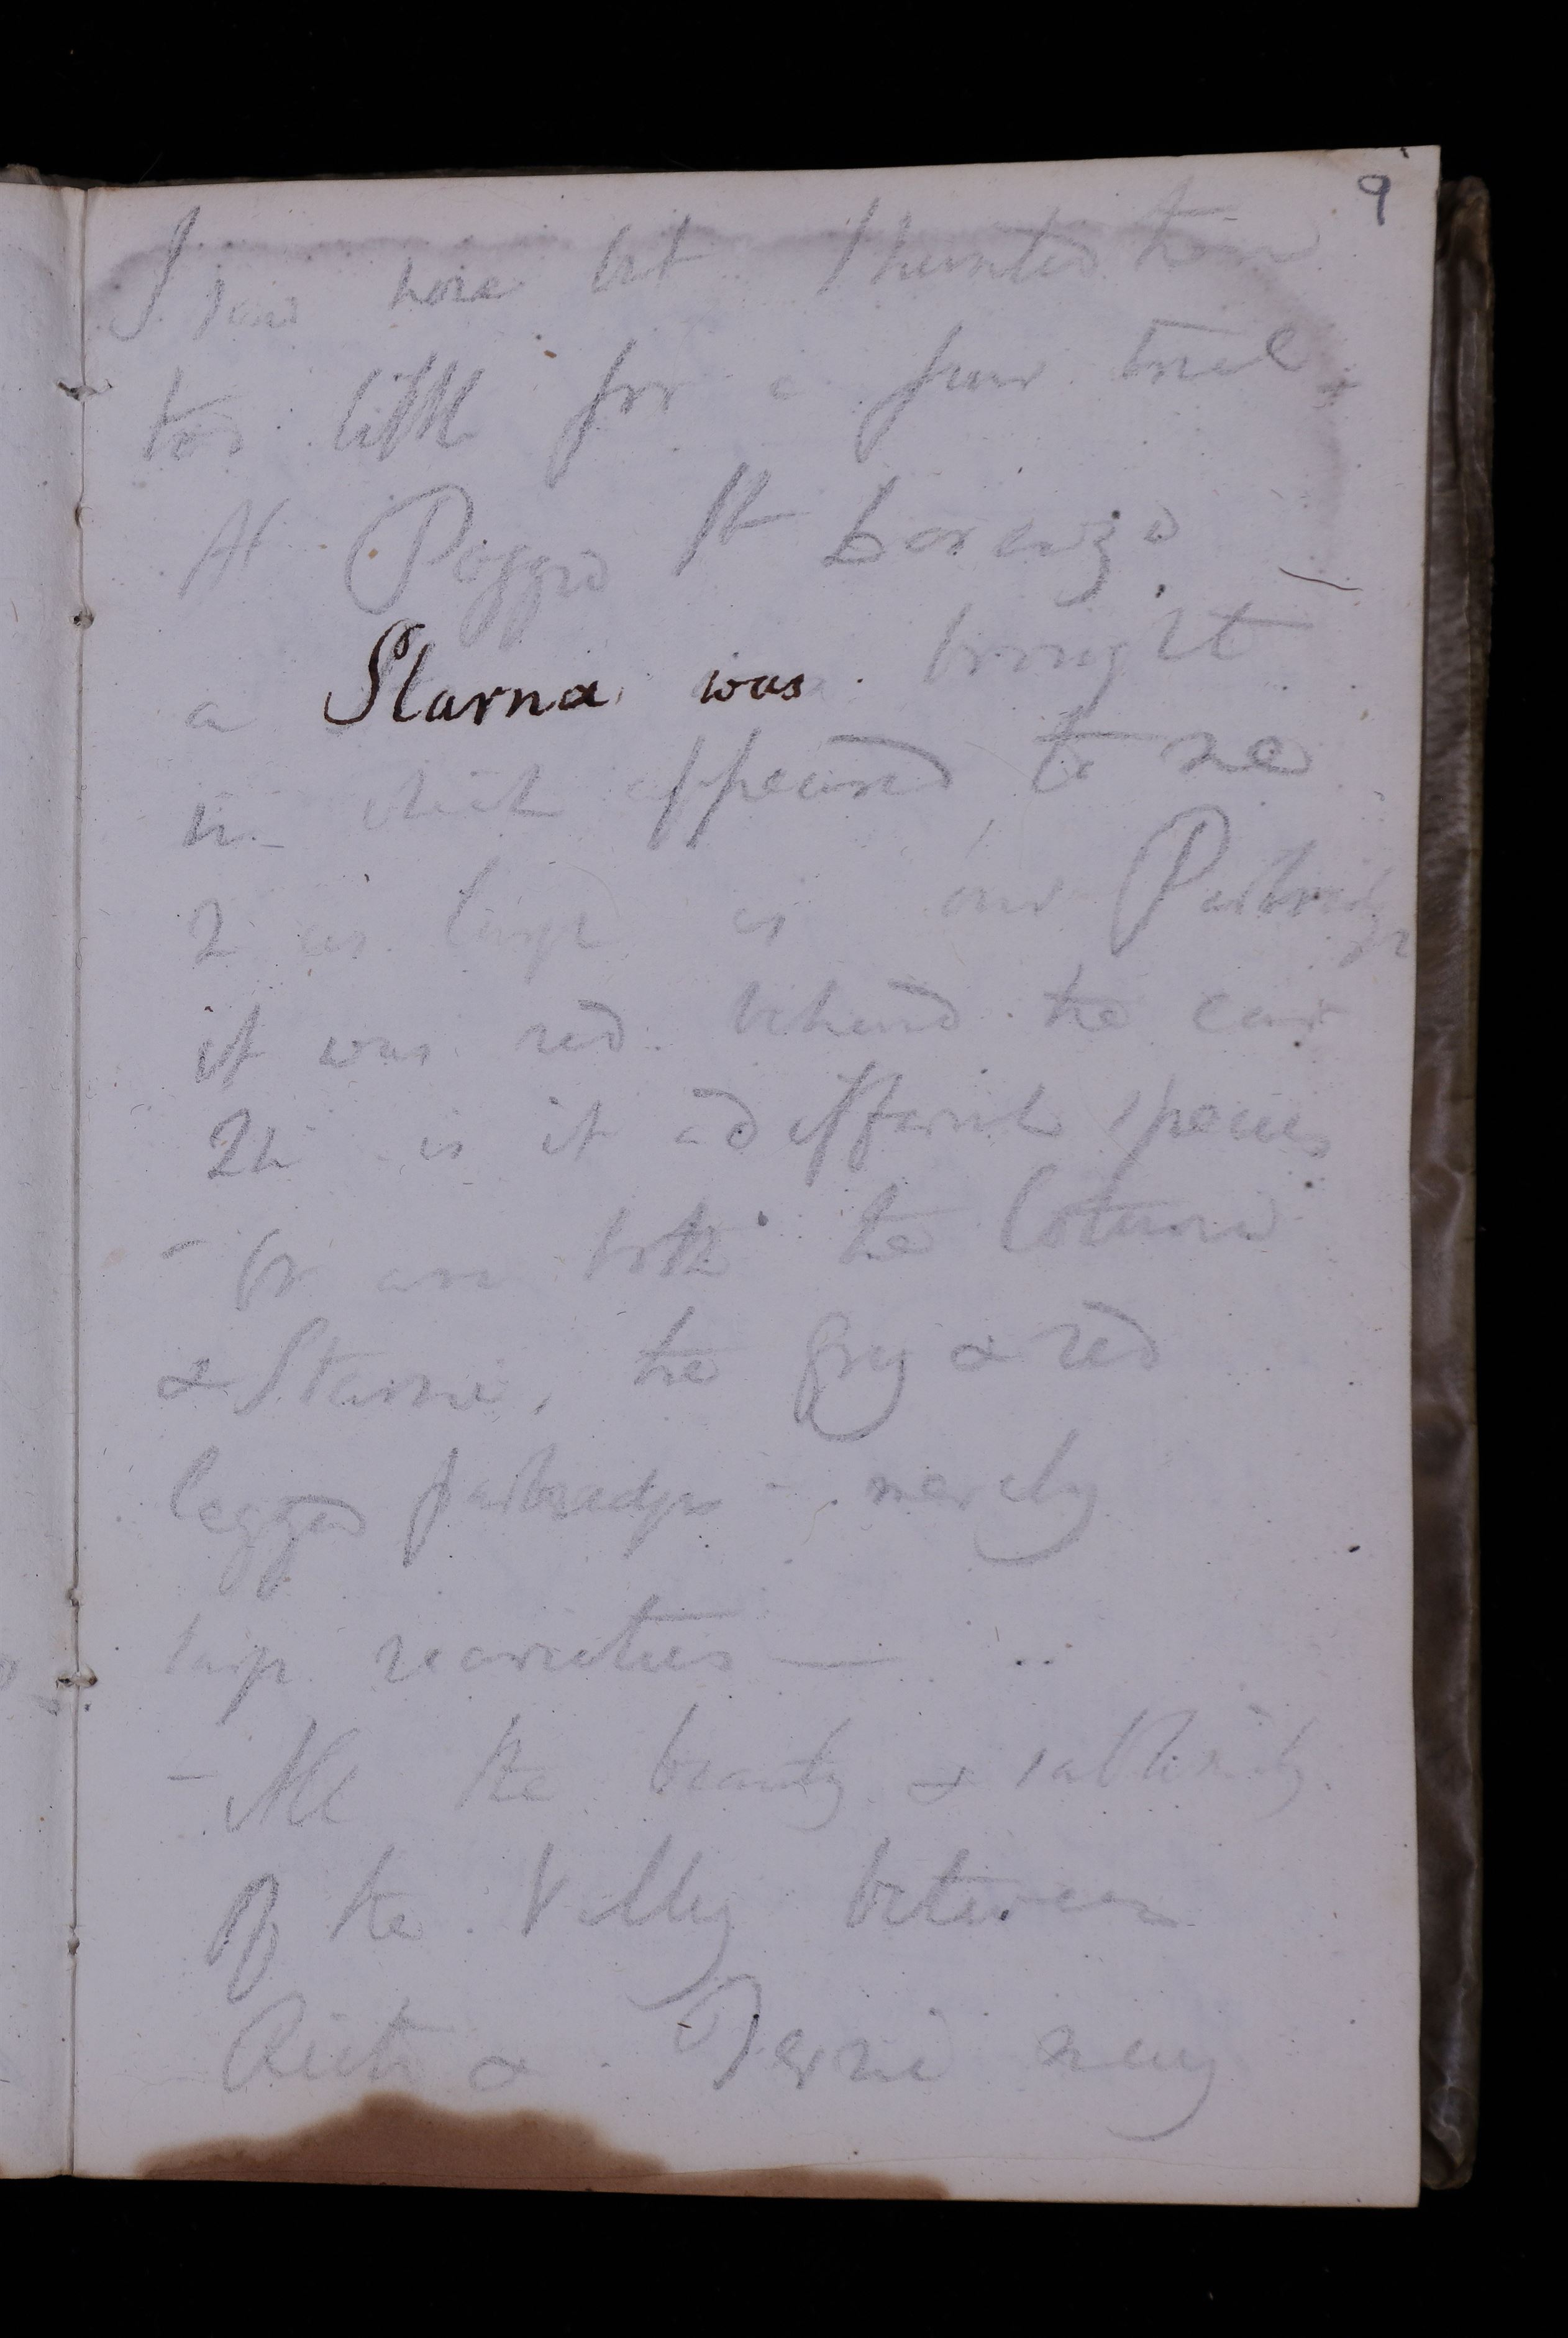 9
I saw none but I hunted them
too little for a fair trial,
At Poggio St Lorenzo
a Starna was brought
in which appeared to me
2 as large as our Partridge
it was red behind the ear
Qu is it a different species
- Or are both the Coturno
& Starna, the grey & red
legged partridges - merely
large varieties —
- All the beauty & sublimity
Of the Valley between
Rieti & Terni may